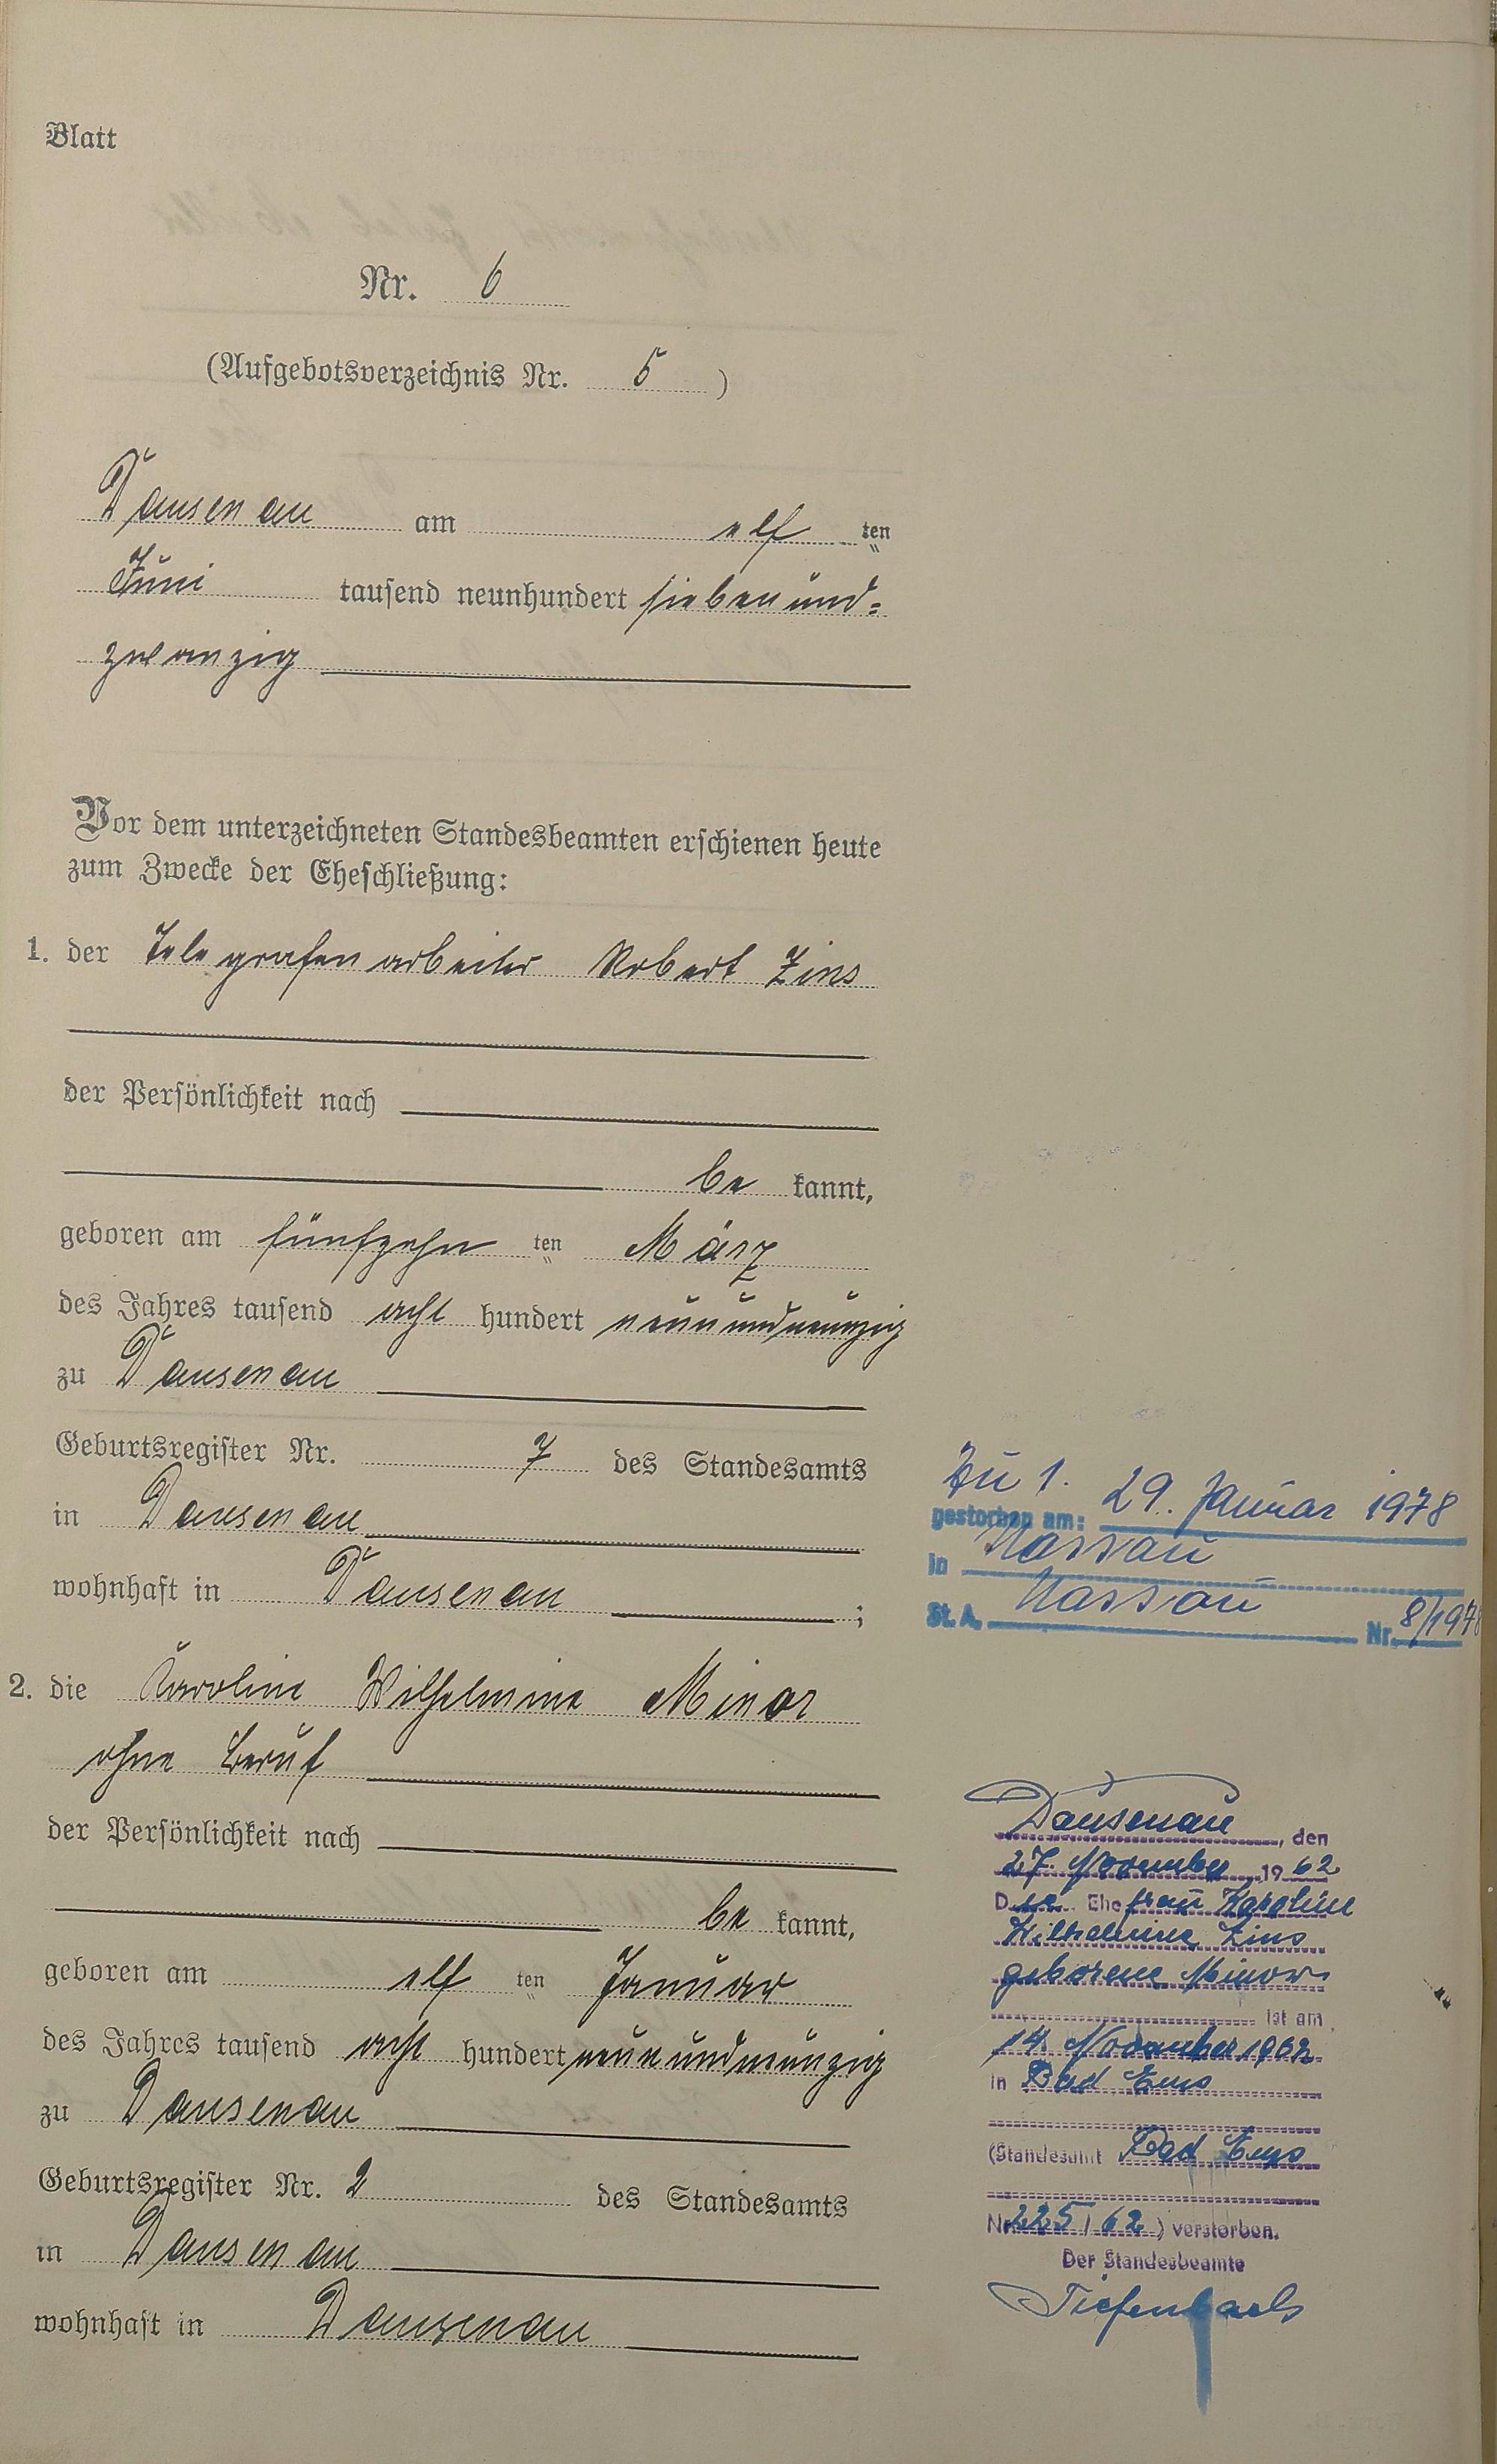 Blatt
Nr. 6
(Aufgebotsverzeichnis Nr. 5 )
Dausenau am elf ten
Juni tausend neunhundert siebenund-
zwanzig
Vor dem unterzeichneten Standesbeamten erschienen heute
zum Zwecke der Eheschließung:
1. der Telegrafenarbeiter Robert Zins
der Persönlichkeit nach
be kannt,
geboren am fünfzehn ten März
des Jahres tausend acht hundert neunundneunzig
zu Dausenau
Geburtsregister Nr. 7 des Standesamts
in Dausenau
wohnhaft in Dausenau ;
2. die Karoline Wilhelmine Minor
ohne Beruf
der Persönlichkeit nach
be kannt,
geboren am elf ten Januar
des Jahres tausend acht hundert neunundneunzig
zu Dausenau
Geburtsregister Nr. 2 des Standesamts
in Dausenau
wohnhaft in Dausenau
Zu 1.
gestorben am: 29. Januar 1978
in Nassau
St. A. Nassau Nr. 8/1978
Dausenau, den
27. November 1962
Die Ehefrau Karoline
Wilhelmine Zins
geborene Minor
ist am
14. November 1962
in Bad Ems
(Standesamt Bad Ems
Nr. 225/62) verstorben.
Der Standesbeamte
Tiefenbach